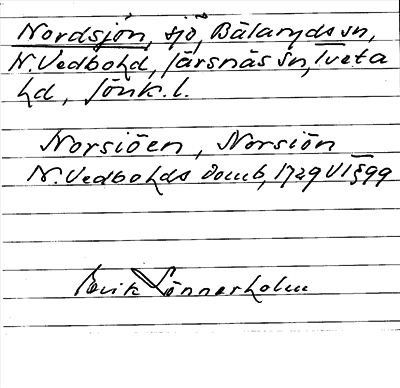 Nordsjön, sjö, Bälaryds sn,
N. Vedbo hd, Järsnäs sn, Tveta
hd, Jönk. l.
Norsiöen, Norsiön
N. Vedbo hds domb, 1729 VI § 99
Erik Lönnerholm